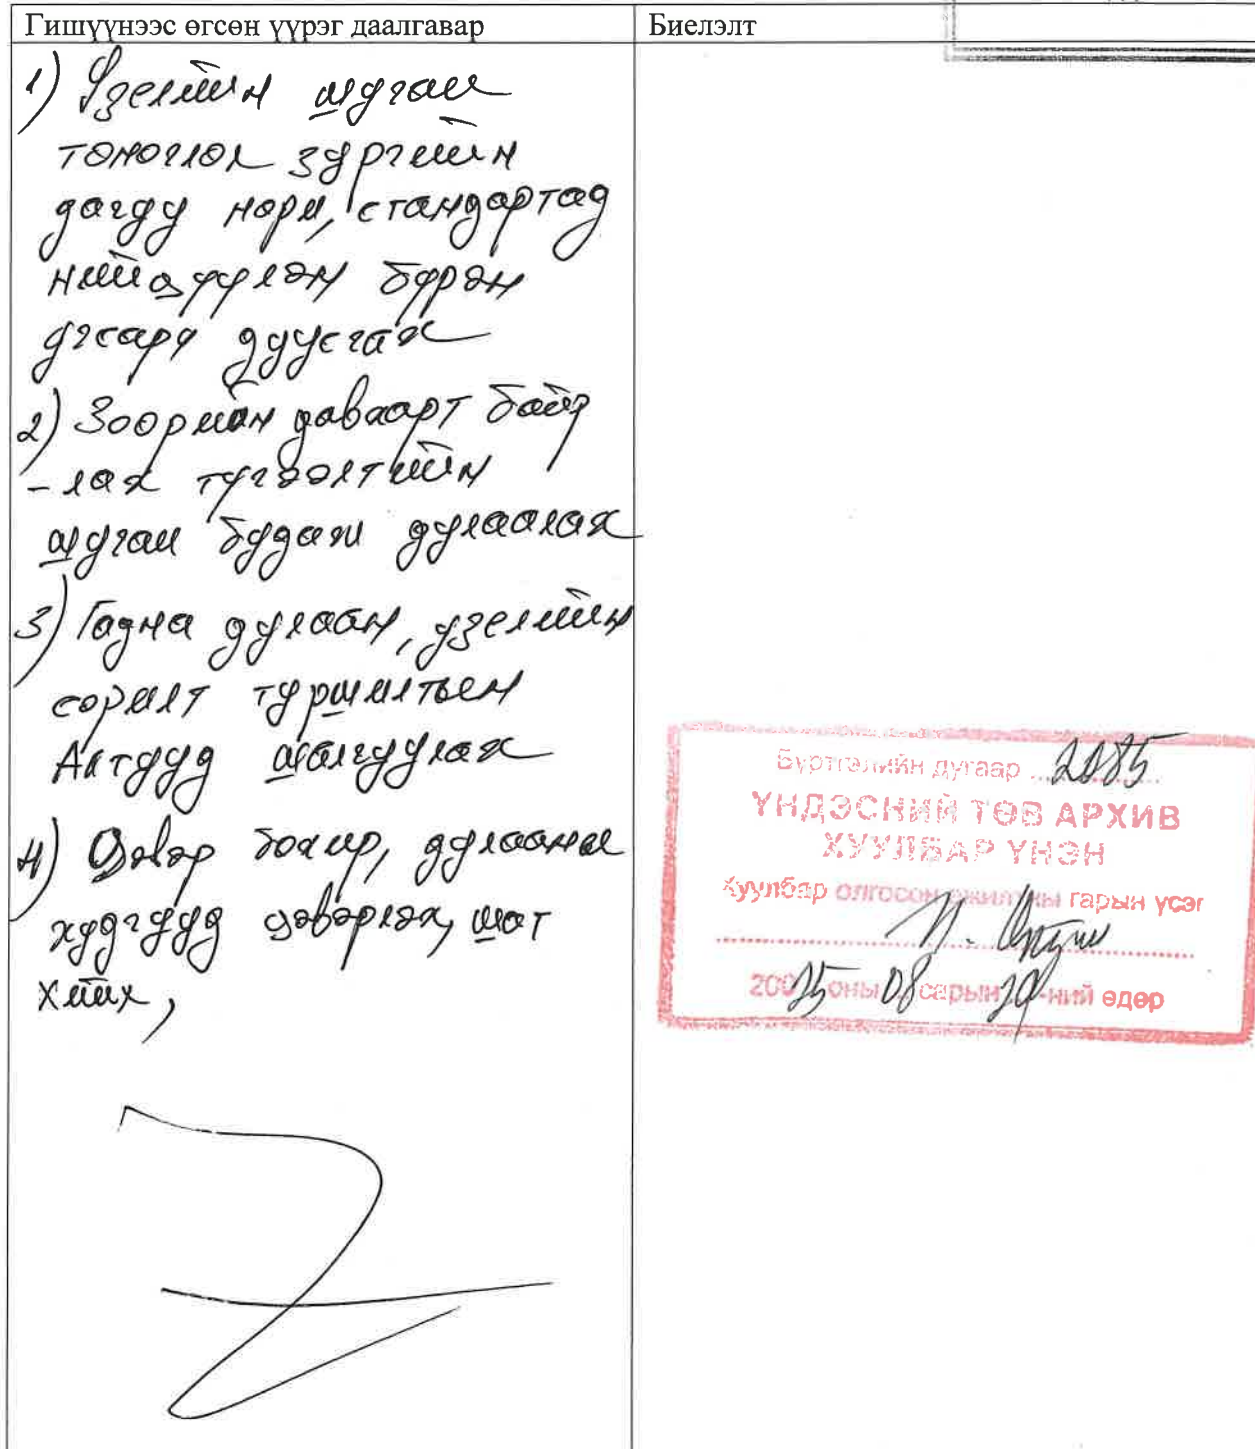 Гишүүнээс өгсөн үүрэг даалгавар
Биелэлт
1) Узелийн шугам
тоноглол зургийн
дагуу норм, стандартад
нийцүүлэн бүрэн
угсарч дуусгах
2) Зоорийн давхарт байр
-лах түгээлтийн
шугам будаж дулаалах
3) Гадна дулаан, узелийн
сорилт туршилтын
Актууд шалгуулах
4) Цэвэр бохир, дулааны
худгууд цэвэрлэх, шат
хийх,
Бүртгэлийн дугаар 2085
ҮНДЭСНИЙ ТӨВ АРХИВ
ХУУЛБАР ҮНЭН
Хуулбар олгосон ажилтны гарын үсэг
200 25 оны 08 сарын -ний өдөр